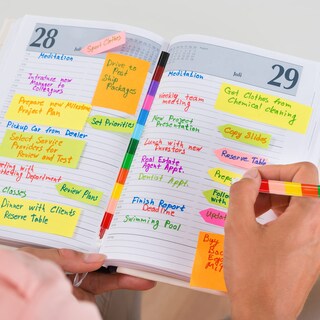 28
Juli
Send Clothes
Meditation
Introduce new
Manager to
Colleagues
Drive to
Post
Ship
Packages
Prepare new Milestone
Project Plan
Set Priorities
Pickup Car from Dealer
Select Service
Providers for Service
and Test
Meeting with
Marketing Department
Classes
Review Plans
Dinner with Clients
Reserve Table
Juli
29
Meditation
Get Clothes from
Chemical cleaning
Weekly team
meeting
New Project
Presentation
Copy Slides
Lunch with new
Investors
Reserve Table
Real Estate
Agent Appt.
Dentist Appt.
Prepare
Follow
with
Finish Report
Deadline
Update
Swimming Pool
Buy